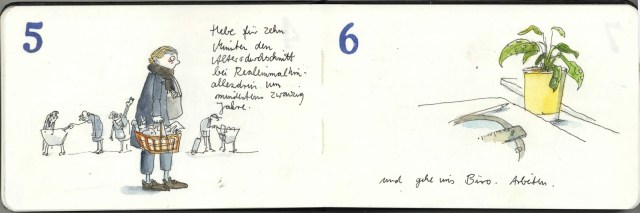 5
Hebe für zehn
Minuten den
Altersdurchschnitt
bei
allerdrein um
mindestens zwanzig
Jahre.
6
und gehe ins Büro. Arbeiten.